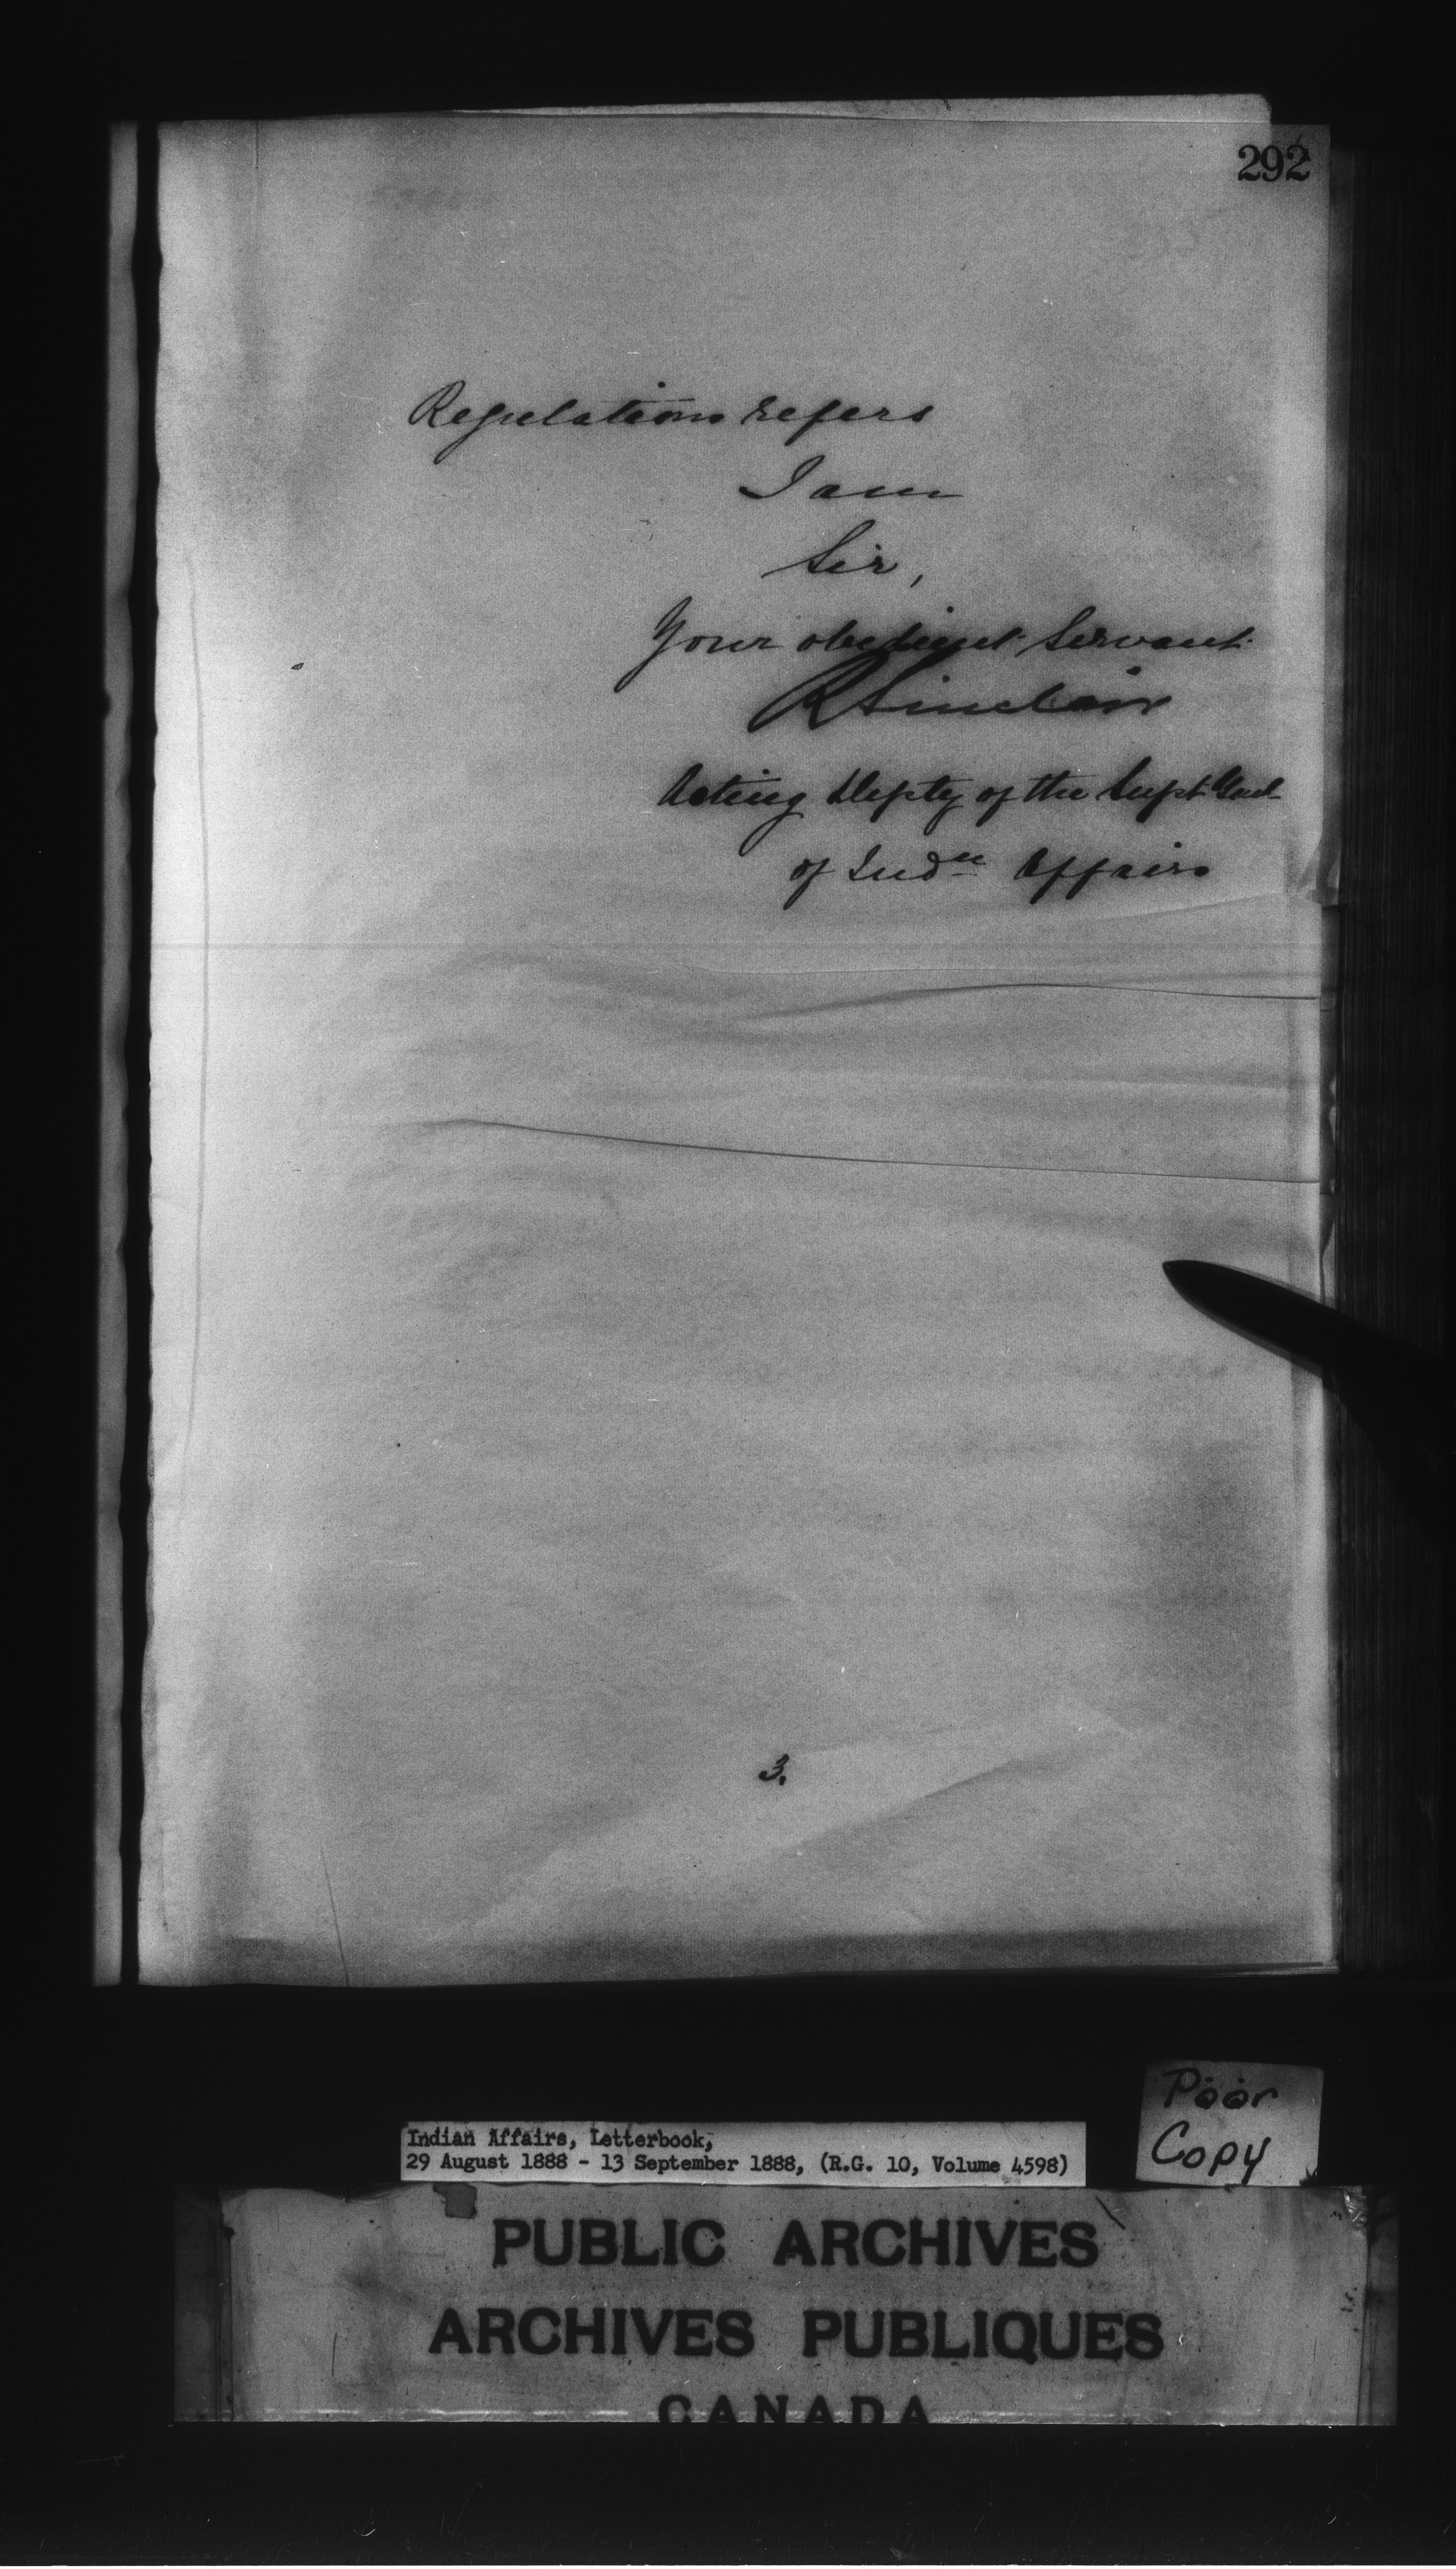 292
Regulations refers
I am
Sir,
Your obedient Servant
R Sinclair
Acting Depty of the Supt. Genl.
of Indn Affairs
3.
Poor
Copy
Indian Affairs, Letterbook,
29 August 1888 - 13 September 1888, (R.G. 10, Volume 4598)
PUBLIC ARCHIVES
ARCHIVES PUBLIQUES
CANADA